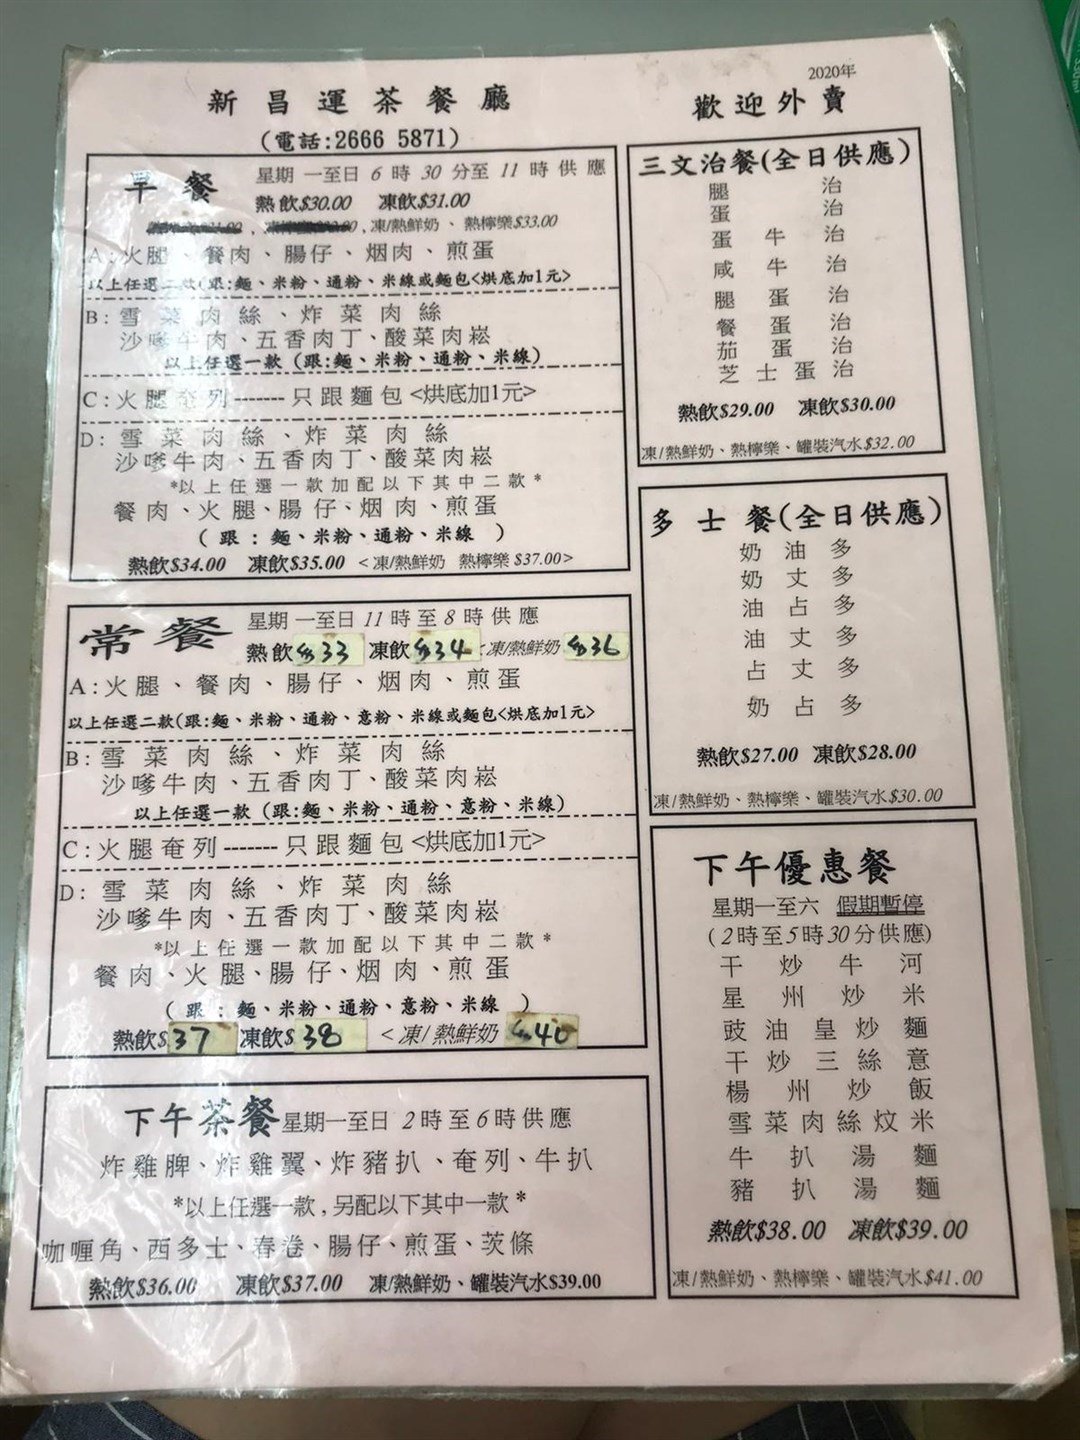 2020年
新昌運茶餐廳
歡迎外賣
(電話:2666 5871)
早餐 星期一至日6時30分至11時供應
熱飲$30.00 凍飲$31.00
凍/熱鮮奶、熱檸樂$33.00
A:火腿、餐肉、腸仔、烟肉、煎蛋
以上任選二款(跟:麵、米粉、通粉、米線或麵包<烘底加1元>
B:雪菜肉絲、炸菜肉絲
沙嗲牛肉、五香肉丁、酸菜肉崧
以上任選一款(跟:麵、米粉、通粉、米線)
C:火腿奄列-------只跟麵包<烘底加1元>
D:雪菜肉絲、炸菜肉絲
沙嗲牛肉、五香肉丁、酸菜肉崧
*以上任選一款加配以下其中二款*
餐肉、火腿、腸仔、烟肉、煎蛋
(跟:麵、米粉、通粉、米線)
熱飲$34.00 凍飲$35.00 <凍/熱鮮奶 熱檸樂$37.00>
常餐 星期一至日11時至8時供應
熱飲$33 凍飲$34 <凍/熱鮮奶 $36
A:火腿、餐肉、腸仔、烟肉、煎蛋
以上任選二款(跟:麵、米粉、通粉、意粉、米線或麵包<烘底加1元>
B:雪菜肉絲、炸菜肉絲
沙嗲牛肉、五香肉丁、酸菜肉崧
以上任選一款(跟:麵、米粉、通粉、意粉、米線)
C:火腿奄列-------只跟麵包<烘底加1元>
D:雪菜肉絲、炸菜肉絲
沙嗲牛肉、五香肉丁、酸菜肉崧
*以上任選一款加配以下其中二款*
餐肉、火腿、腸仔、烟肉、煎蛋
(跟:麵、米粉、通粉、意粉、米線)
熱飲$37 凍飲$38 <凍/熱鮮奶 $40
下午茶餐 星期一至日2時至6時供應
炸雞脾、炸雞翼、炸豬扒、奄列、牛扒
*以上任選一款,另配以下其中一款*
咖喱角、西多士、春卷、腸仔、煎蛋、茨條
熱飲$36.00 凍飲$37.00 凍/熱鮮奶、罐裝汽水$39.00
三文治餐(全日供應)
腿治
蛋治
蛋牛治
咸牛治
腿蛋治
餐蛋治
茄蛋治
芝士蛋治
熱飲$29.00 凍飲$30.00
凍/熱鮮奶、熱檸樂、罐裝汽水$32.00
多士餐(全日供應)
奶油多
奶丈多
油占多
油丈多
占丈多
奶占多
熱飲$27.00 凍飲$28.00
凍/熱鮮奶、熱檸樂、罐裝汽水$30.00
下午優惠餐
星期一至六 假期暫停
(2時至5時30分供應)
干炒牛河
星州炒米
豉油皇炒麵
干炒三絲意
楊州炒飯
雪菜肉絲炆米
牛扒湯麵
豬扒湯麵
熱飲$38.00 凍飲$39.00
凍/熱鮮奶、熱檸樂、罐裝汽水$41.00